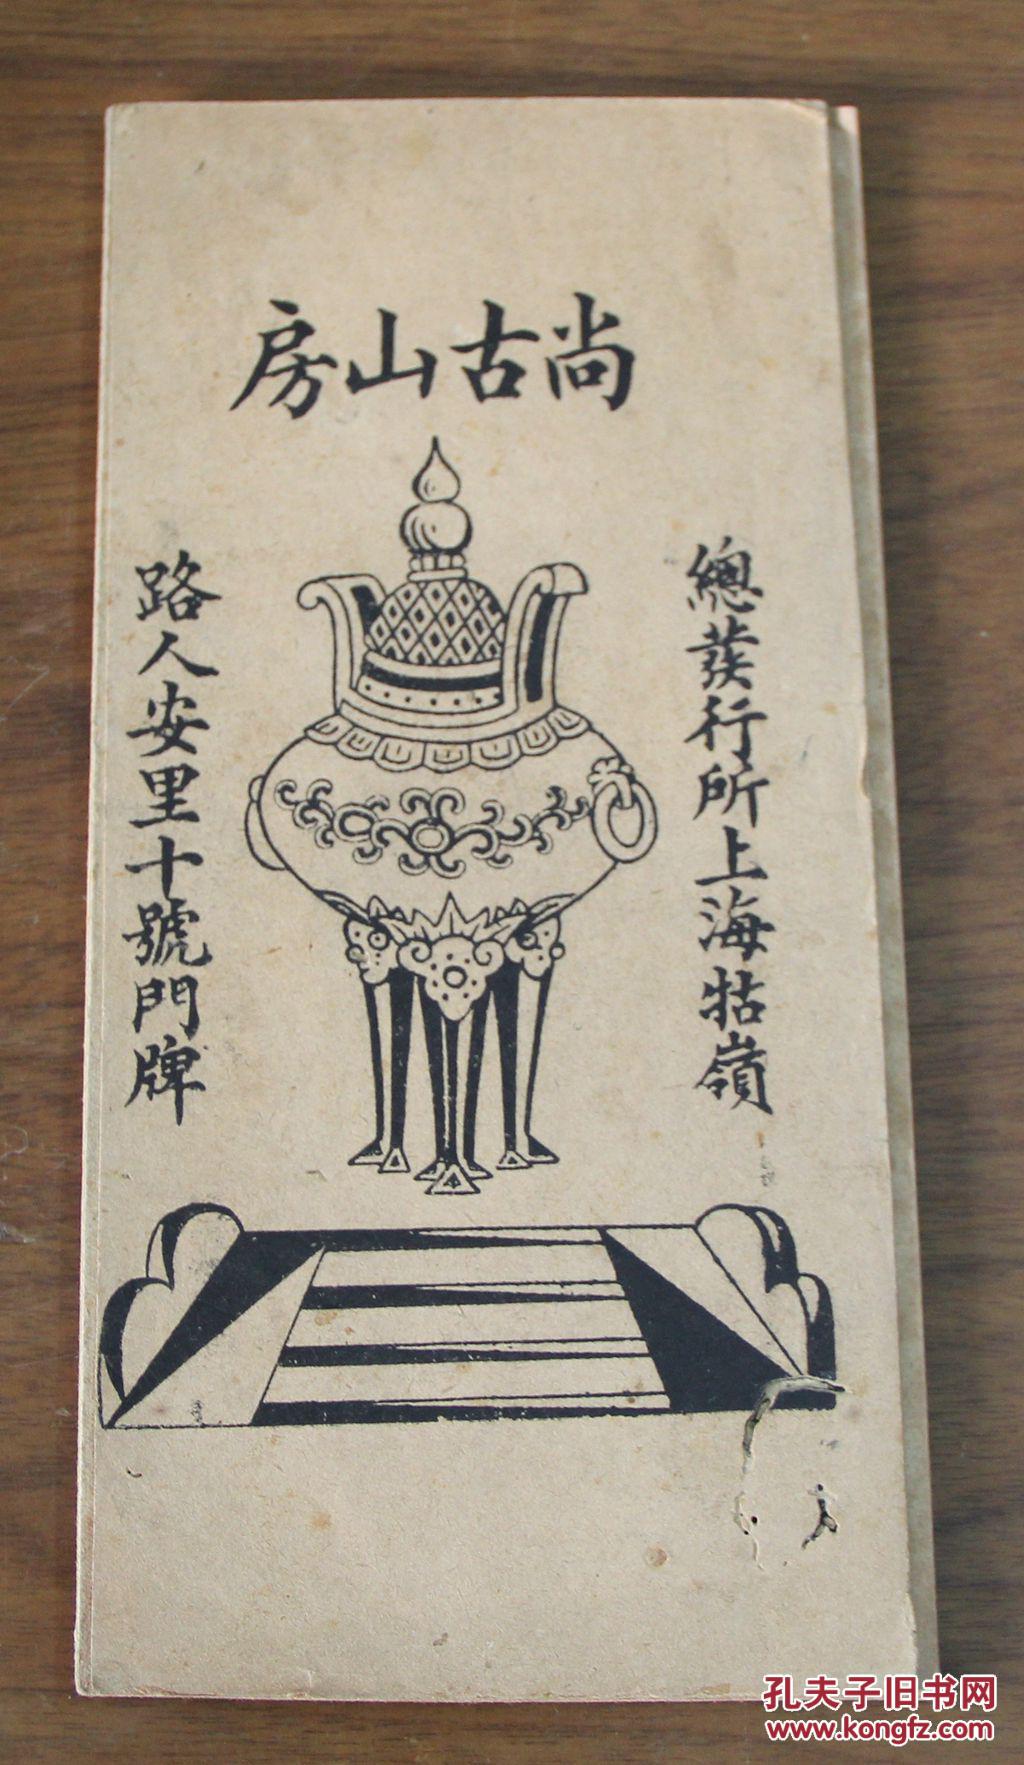 尚古山房
總發行所上海牯嶺
路人安里十號門牌
孔夫子旧书网
www.kongfz.com